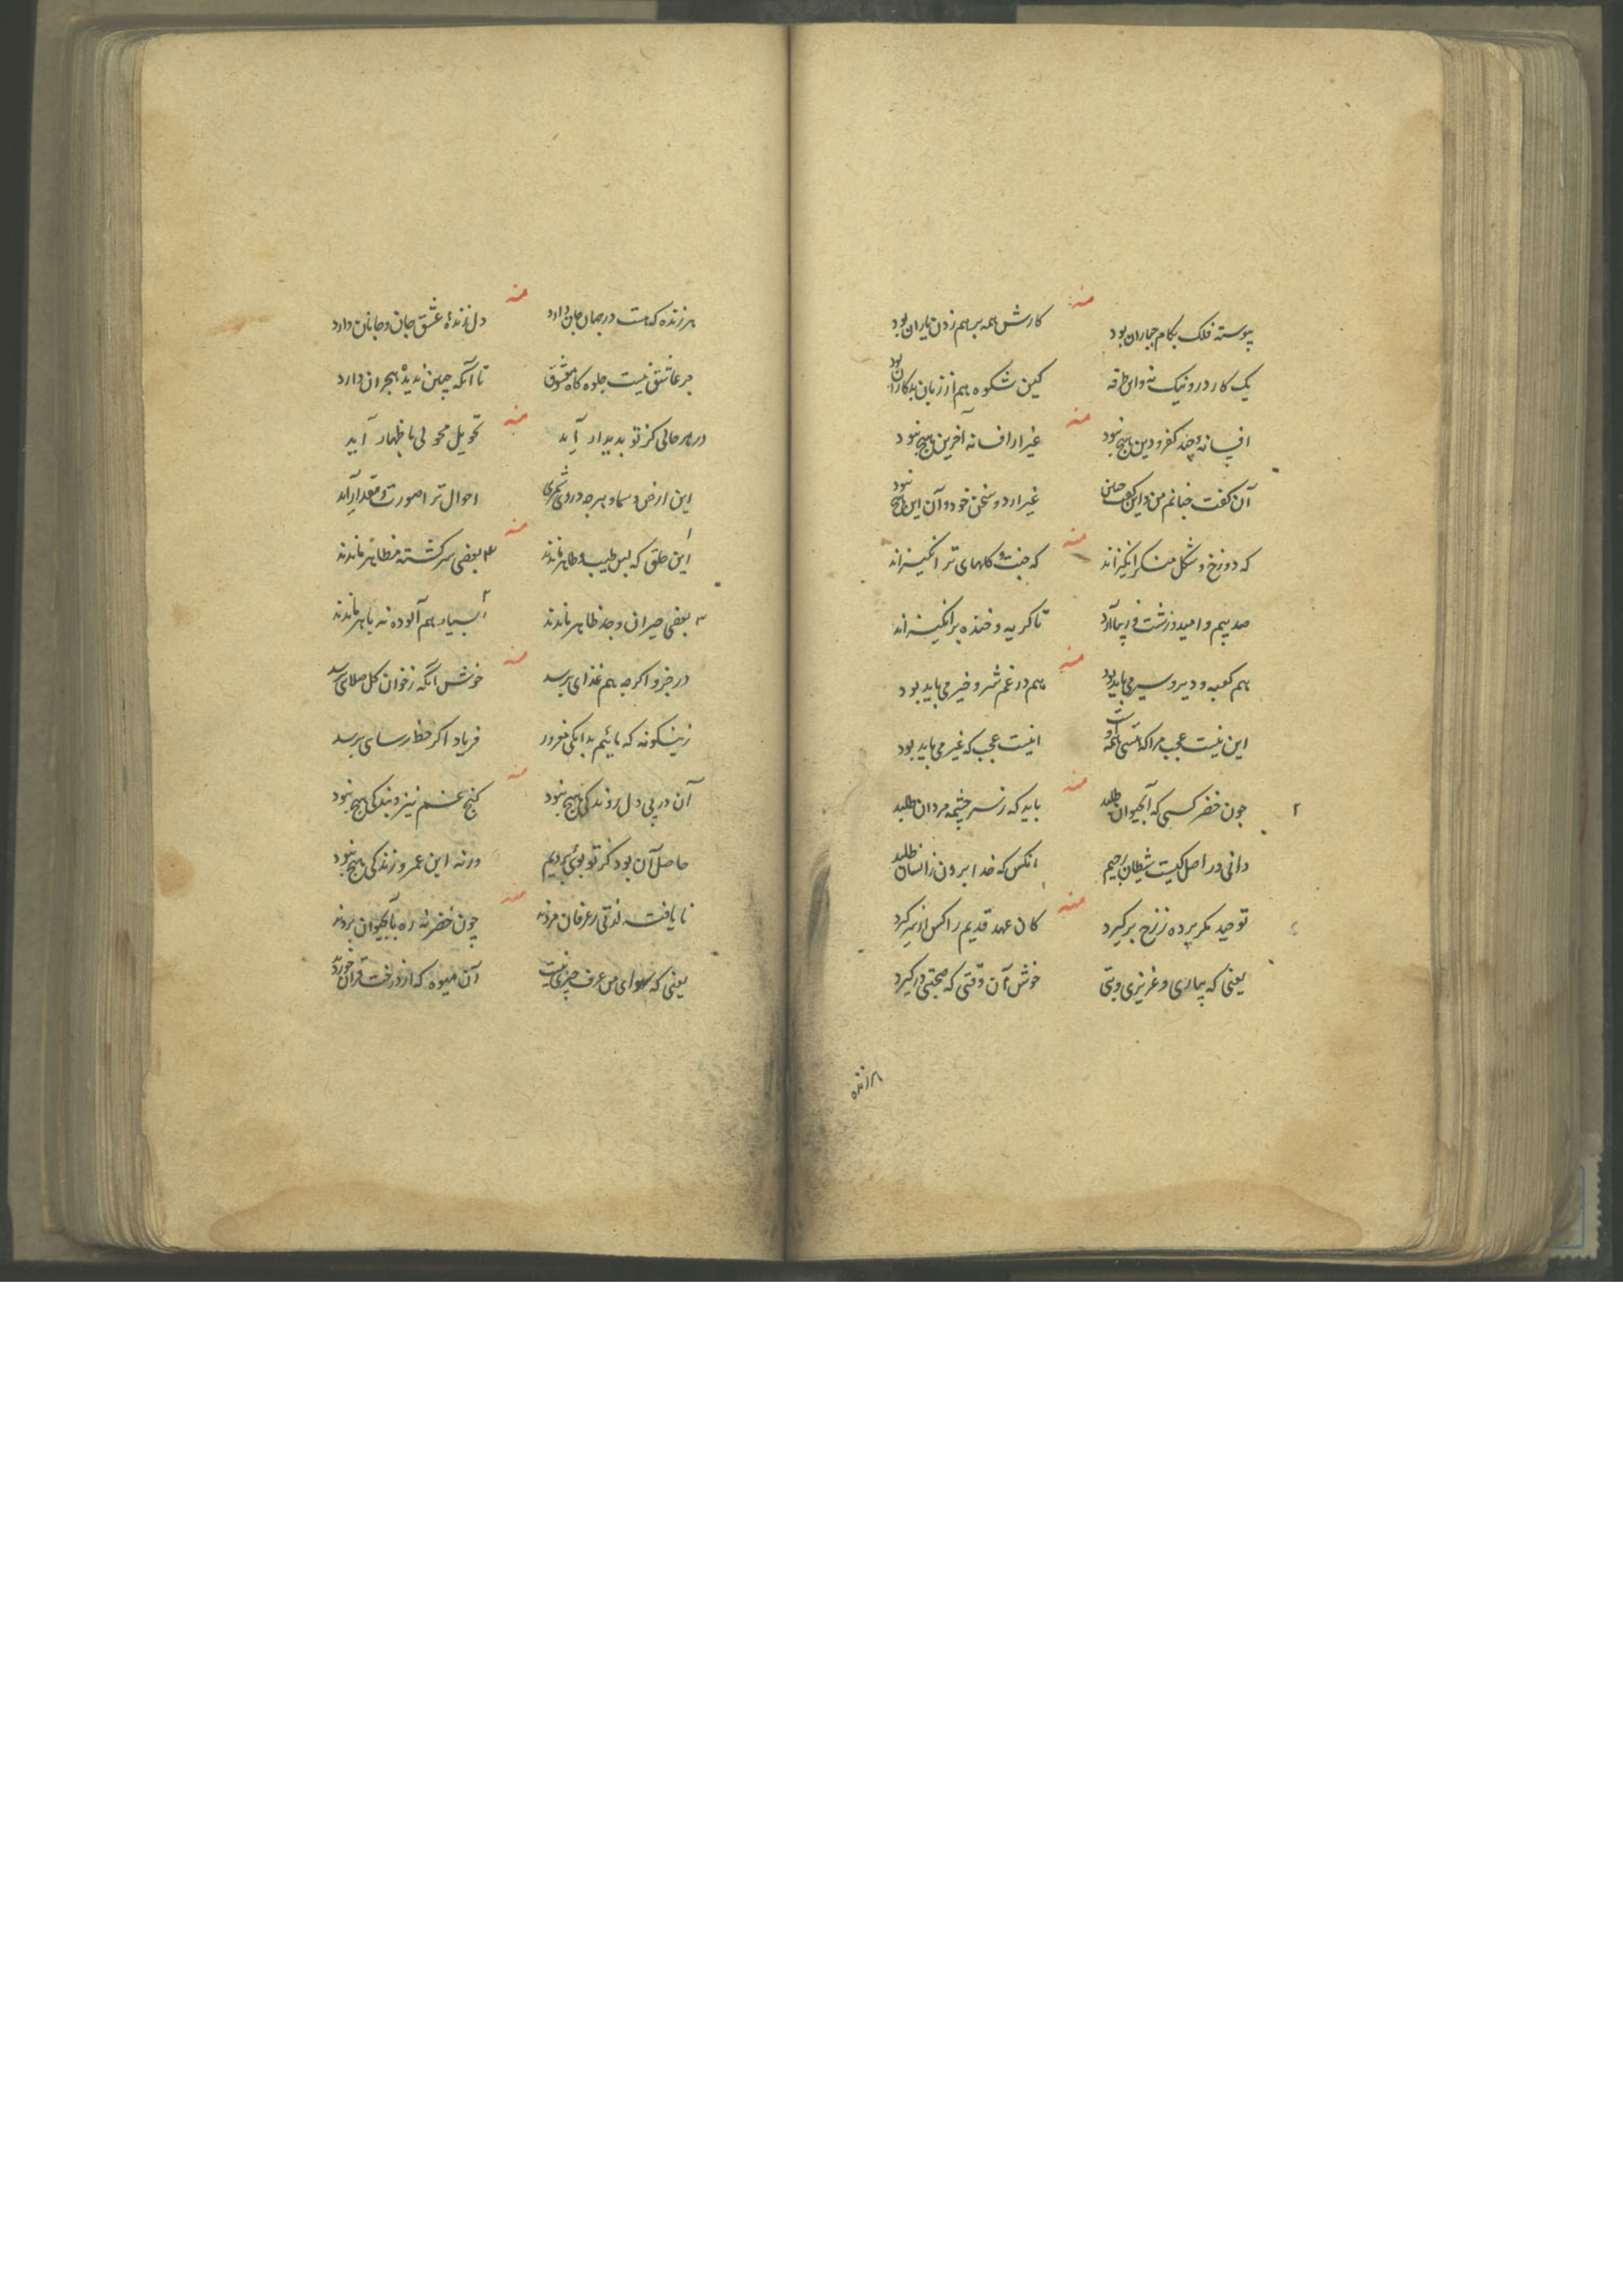 منه
پیوسته فلک بکام جباران بود کارش همه بر هم زدن یاران بود
یک کار درو نیک نه وای طرفه کین شکوه هم از زبان بدکاران بود
منه
افسانه و چند کفر و دین هیچ نبود غیر از افسانه آفرین هیچ نبود
آن گفت چنانم من و این گفت چنین غیر از دو سخن خود و آن این هیچ نبود
منه
که دوزخ و شکل منکر انگیزاند که جنت و گلهای تر انگیزاند
صد بیم و امید و زشت و زیبا آرد تا گریه و خنده برانگیزاند
منه
هم کعبه و دیر و سیر می باید بود هم در غم شر و خیر می باید بود
این نیست عجب مرا که اینست عجب که غیر می باید بود
منه
۲ چون خضر کسی که آبحیوان طلبد باید که ز سرچشمه مردان طلبد
دانی در اصل کیست شیطان رجیم انکس که خدا برون ز انسان طلبد
منه
توحید مگر پرده ز رخ برگیرد کان عهد قدیم را کس از سر گیرد
یعنی که بیاری و عزیزی و بتی خوش آن وقتی که صحبتی درگیرد
هر زنده
منه
هر زنده که هست در جهان جان دارد دل زندهٔ عشق جان و جانان دارد
هر عاشق نیست جلوه گاه معشوق تا آنکه چمن ندیدهٔ هجران دارد
منه
در هر حالی کز تو پدیدار آید تحویل محولی باظهار آید
این ارض و سما و هر چه در وی شمری احوال ترا صورت و مقدار آید
منه
۱ این خلق که بس طیب و طاهر ماندند ۴ بعضی سرگشته مظاهر ماندند
۳ بعضی حیران وجد ظاهر ماندند ۲ بسیار هم آلوده نه باهر ماندند
منه
در جزو اگرچه هم غذای برسد خوش آنگه ز خوان کل صلای برسد
زینگونه که مائیم بدانکی مغرور فریاد اگر خطا رسای برسد
منه
آن در پی دل روندگی هیچ نبود کنج غم نیز و بندگی هیچ نبود
حاصل آن بود کز تو بوئی بردیم ورنه این عمر و زندگی هیچ نبود
منه
نا یافته لذتی ز عرفان مردند چون خضر نه ره بآبحیوان بردند
یعنی که سوای من عرف چیزی نیست آن میوه که از درخت قرآن خوردند